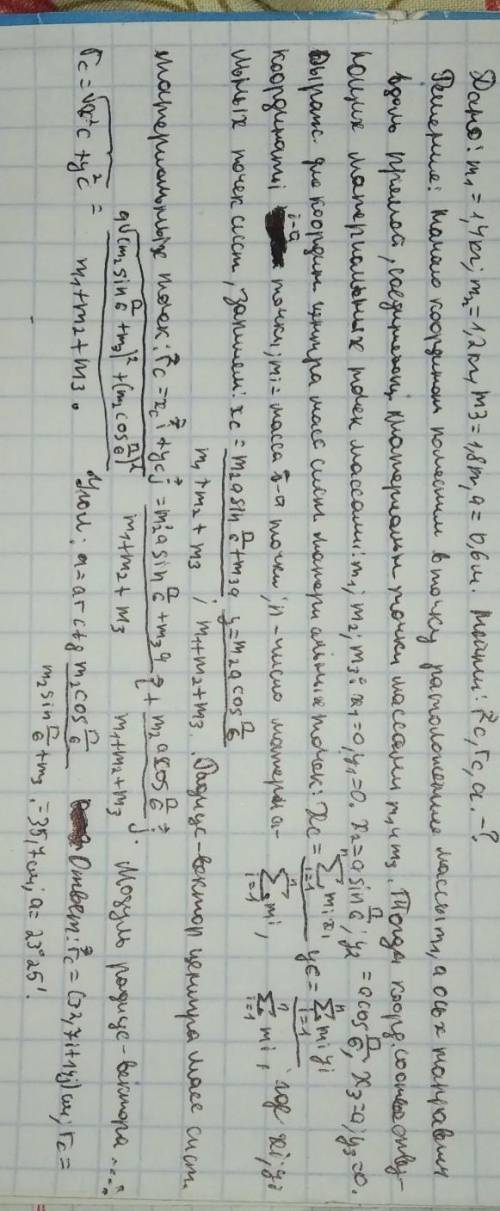 Дано: m₁ = 1,4 кг; m₂ = 1,2 кг, m3 = 1,8 m, a = 0,6 м. Найти: r⃗c, rc, a. -?
Решение: Начало координат поместим в точку расположения массы m₁, а ось x направим
вдоль прямой, соединяющ. материальн. точки массами m₁ и m₃. Тогда коорд. соответству-
ющих материальных точек массами: m₁; m₂; m₃: x₁=0, y₁=0. x₂=a sin π/6; y₂ = a cos π/6, x₃=a; y₃=0.
Выраж. для координ центра масс сист матери альных точек: xc = Σ mi xi / Σ mi, yc = Σ mi yi / Σ mi, где xi; yi
координаты i-а точки; mi = масса i-а точки; n - число матери а-
льных точек сист, запишем: xc = m₂ a sin π/6 + m₃ a / m₁ + m₂ + m₃; y = m₂ a cos π/6 / m₁+m₂+m₃. Радиус-вектор центра масс сист.
материальных точек: r⃗c = xc i⃗ + yc j⃗ = m₂ a sin π/6 + m₃ a / m₁+m₂ + m₃ i⃗ + m₂ a cos π/6 / m₁+m₂+m₃ j⃗. Модуль радиус-вектора ...:
rc = √x²c + yc² = a√(m₂ sin π/6 + m₃)² + (m₂ cos π/6)² / m₁+m₂ + m₃. Угол: a = arctg m₂ cos π/6 / m₂ sin π/6 + m₃. Ответ: r⃗c = (32,7i + 14j) см; rc =
= 35,7 см; a = 23°25'.